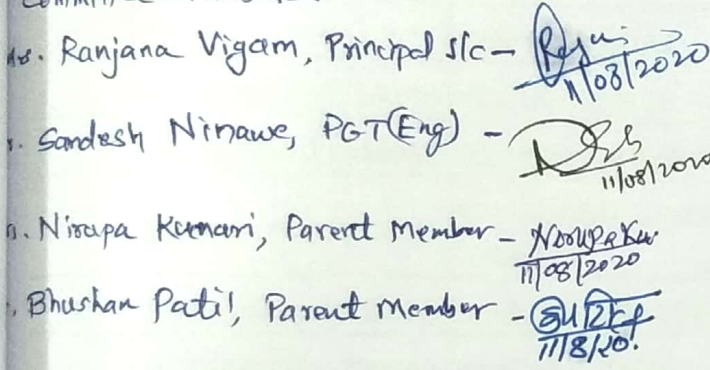 Ranjana Vigam, Principal s/c -
11/08/2020
Sandesh Ninawe, PGT(Eng) -
11/08/2020
Nirupa Kumari, Parent Member - Nirupa Ku
11/08/2020
Bhushan Patil, Parent Member -
11/8/20.